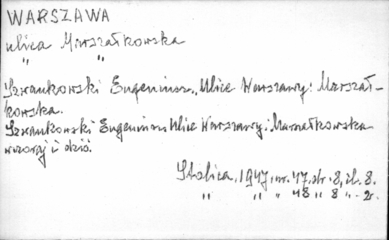 WARSZAWA
ulica Marszałkowska
" "
Szwankowski Eugeniusz, Ulice Warszawy: Marszał-
kowska.
Szwankowski Eugeniusz Ulice Warszawy: Marszałkowska
wczoraj i dziś.
Stolica, 1947, nr. 47, str. 8, il. 8.
" " " 48 " 8 " 2.